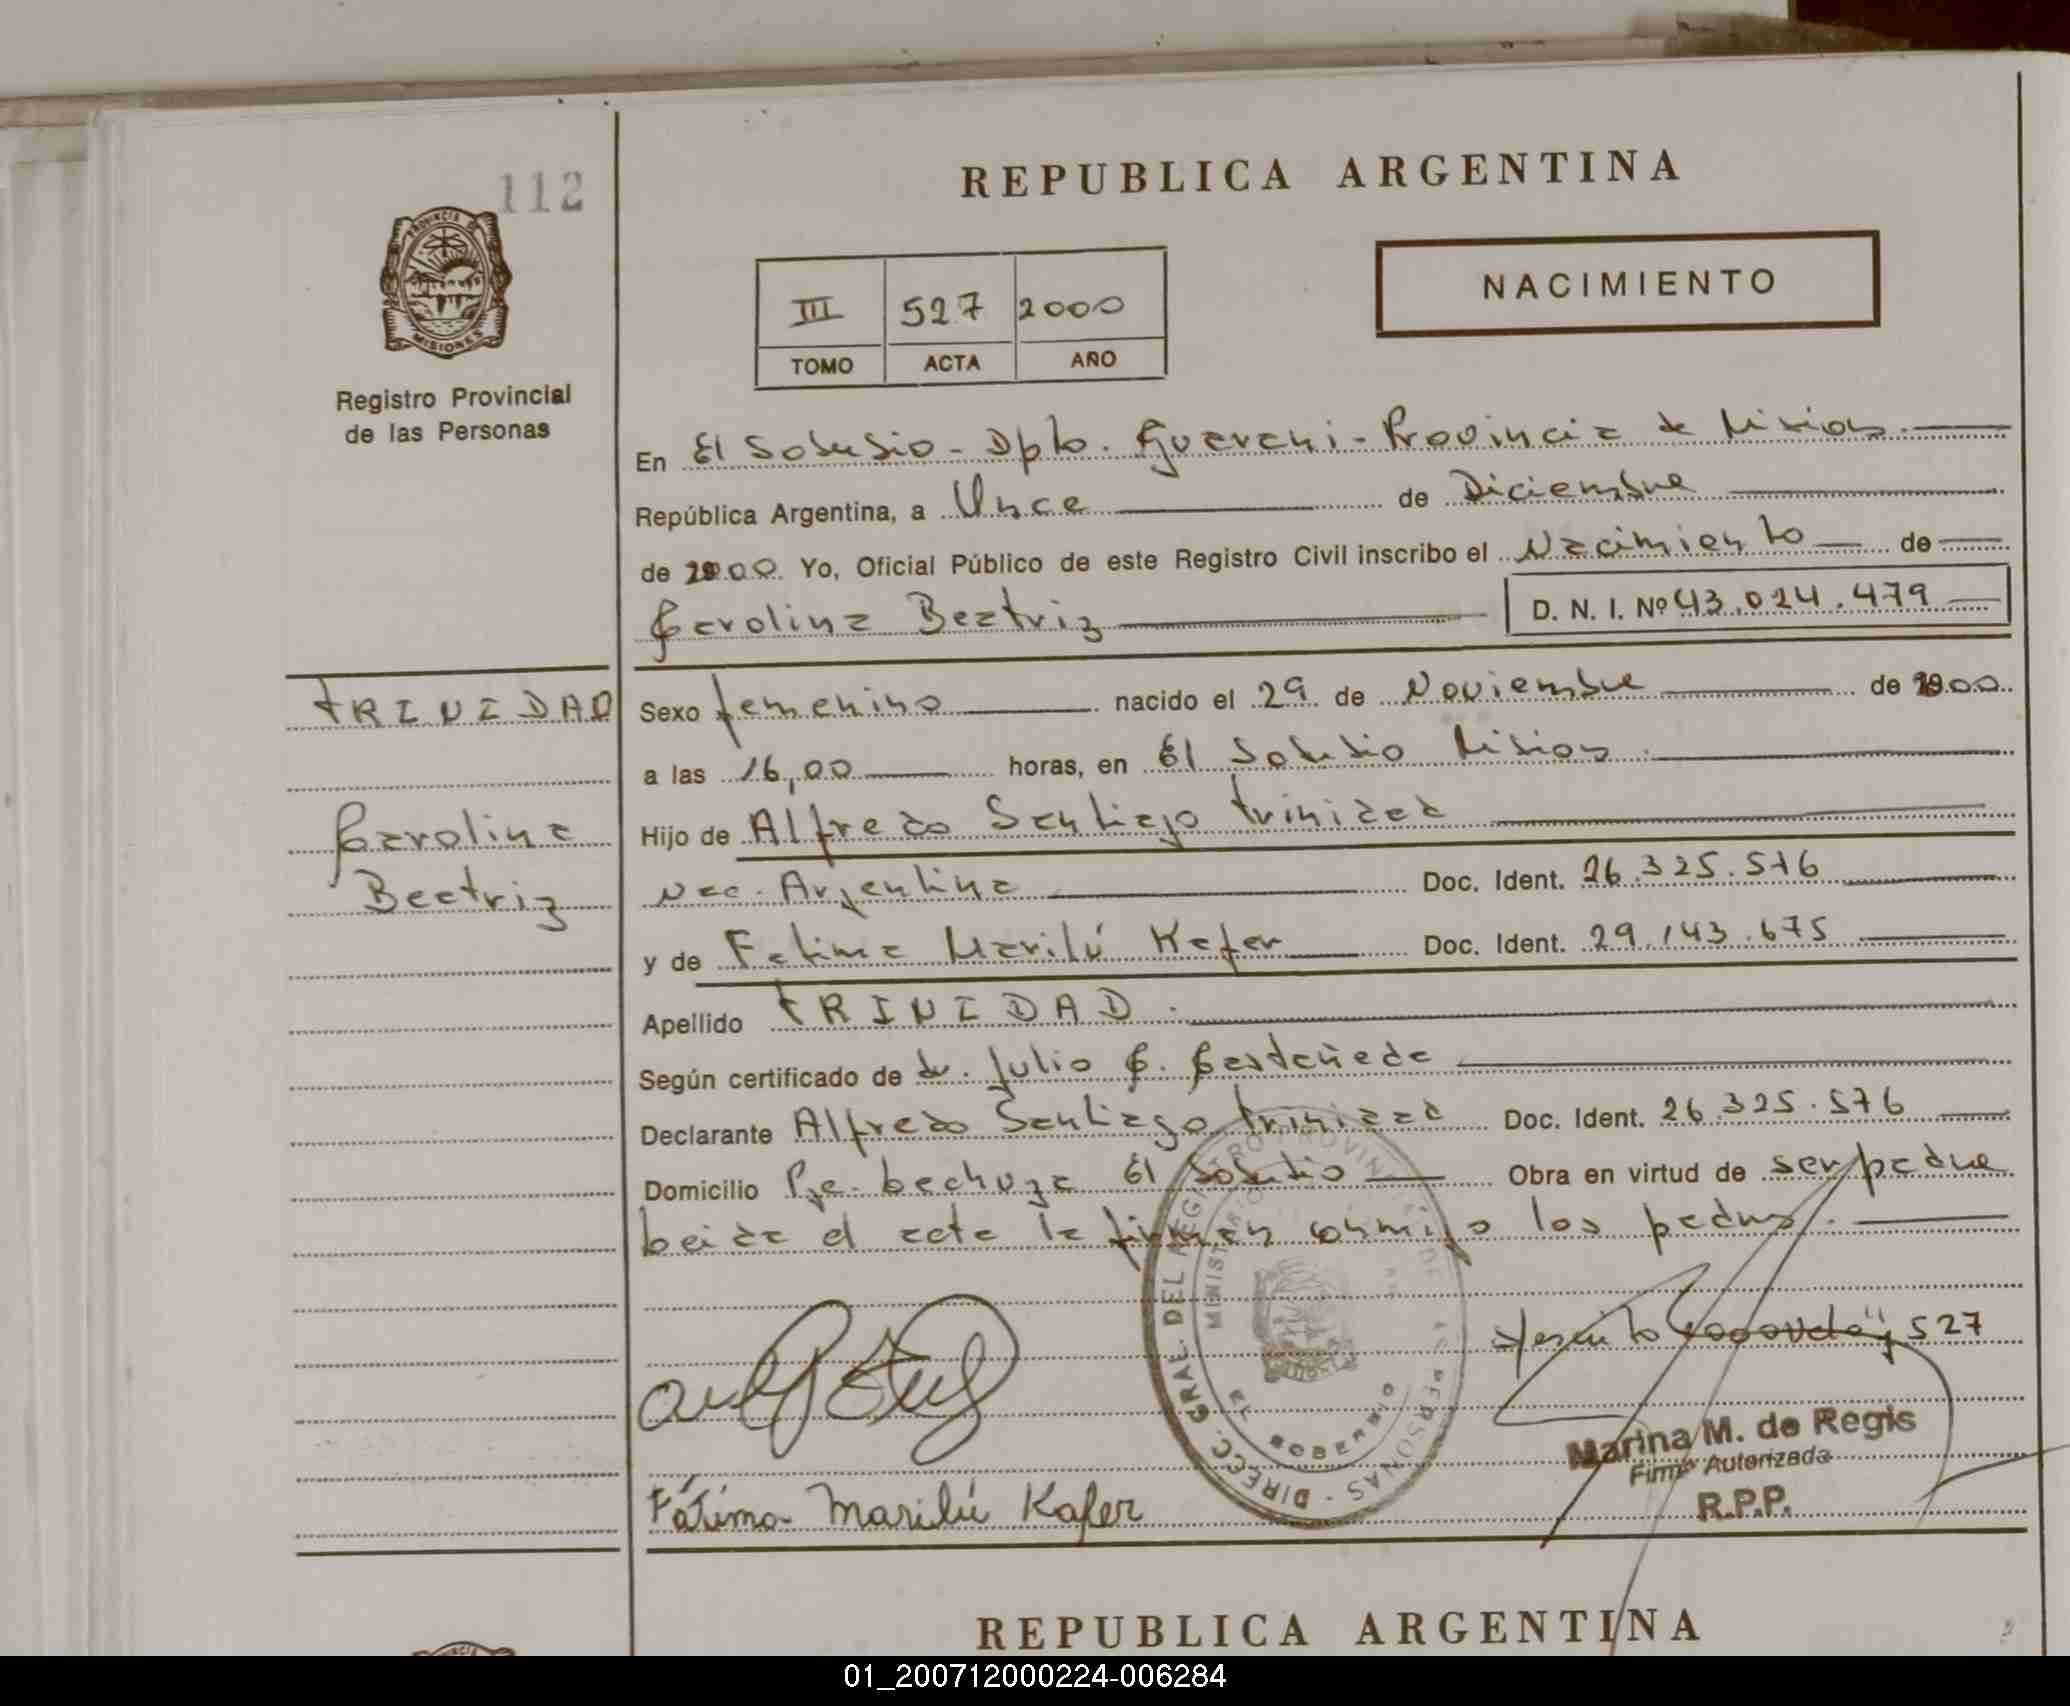 112
REPUBLICA ARGENTINA
NACIMIENTO
III 527 2000
TOMO ACTA AÑO
PROVINCIA DE
MISIONES
Registro Provincial
de las Personas
En El Soberbio - Dpto. Guarani - Provincia de Misiones.
República Argentina, a Once de Diciembre
de 2000 Yo, Oficial Público de este Registro Civil inscribo el Nacimiento de
Carolina Beatriz D. N. I. Nº 43.024.479
TRINIDAD
Sexo femenino nacido el 29 de Noviembre de 2000
a las 16,00 horas, en El Soberbio Misiones.
Carolina
Beatriz
Hijo de Alfredo Santiago Trinidad
Nac. Argentina Doc. Ident. 26.325.576
y de Fatima Marilú Kafer Doc. Ident. 29.143.675
Apellido TRINIDAD.
Según certificado de dr. Julio C. Castañeda
Declarante Alfredo Santiago Trinidad Doc. Ident. 26.325.576
Domicilio Pje. El Soberbio Obra en virtud de ser padre
Leida el acta la firman conmigo los padres.
527
DIREC. GRAL. DEL REGISTRO PROVINCIAL DE LAS PERSONAS
MINISTERIO DE GOBIERNO
Marina M. de Regis
Firma Autorizada
R.P.P.
Fátima Marilú Kafer
REPUBLICA ARGENTINA
01_200712000224-006284